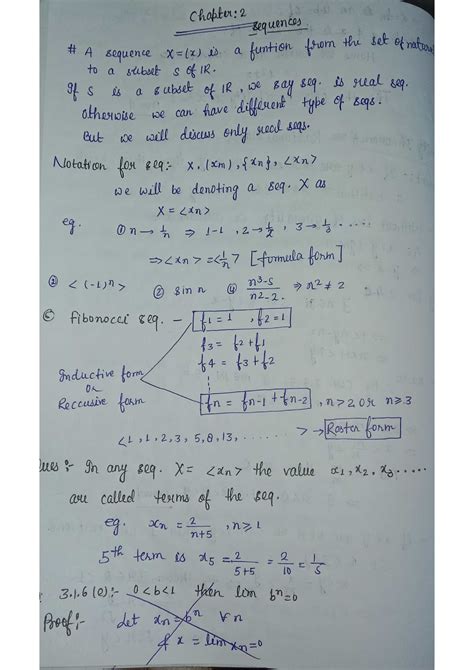 Chapter:2
Sequences
# A sequence X=(x) is a funtion from the set of natur
to a subset S of IR.
If S is a subset of IR, we say seq. is real seq.
otherwise we can have different type of seqs.
But we will discuss only real seqs.
Notation for seq:- X, (xm), {xn}, <xn>
we will be denoting a seq. X as
X = <xn>
eg. ① n → 1/n ⇒ 1-1, 2→1/2, 3→1/3 .....
⇒ <xn> = <1/n> [formula form]
② <(-1)^n> ③ sin n ④ n^3-5/n^2-2. ⇒ n^2 ≠ 2
© Fibonocci seq. - f1 = 1, f2 = 1
f3 = f2 + f1
f4 = f3 + f2
Inductive form
OR
Reccusive form
fn = fn-1 + fn-2, n>2 or n≥3
<1, 1, 2, 3, 5, 8, 13, ....... > → Roster form
lues :- In any seq. X = <xn> the value x1, x2, x3.....
are called terms of the seq.
eg. xn = 2/n+5, n≥1
5th term is x5 = 2/5+5 = 2/10 = 1/5
3.1.6 (e):- 0<b<1 then lim b^n=0
Proof:- Let xn = b^n ∀n
& x = lim xn = 0